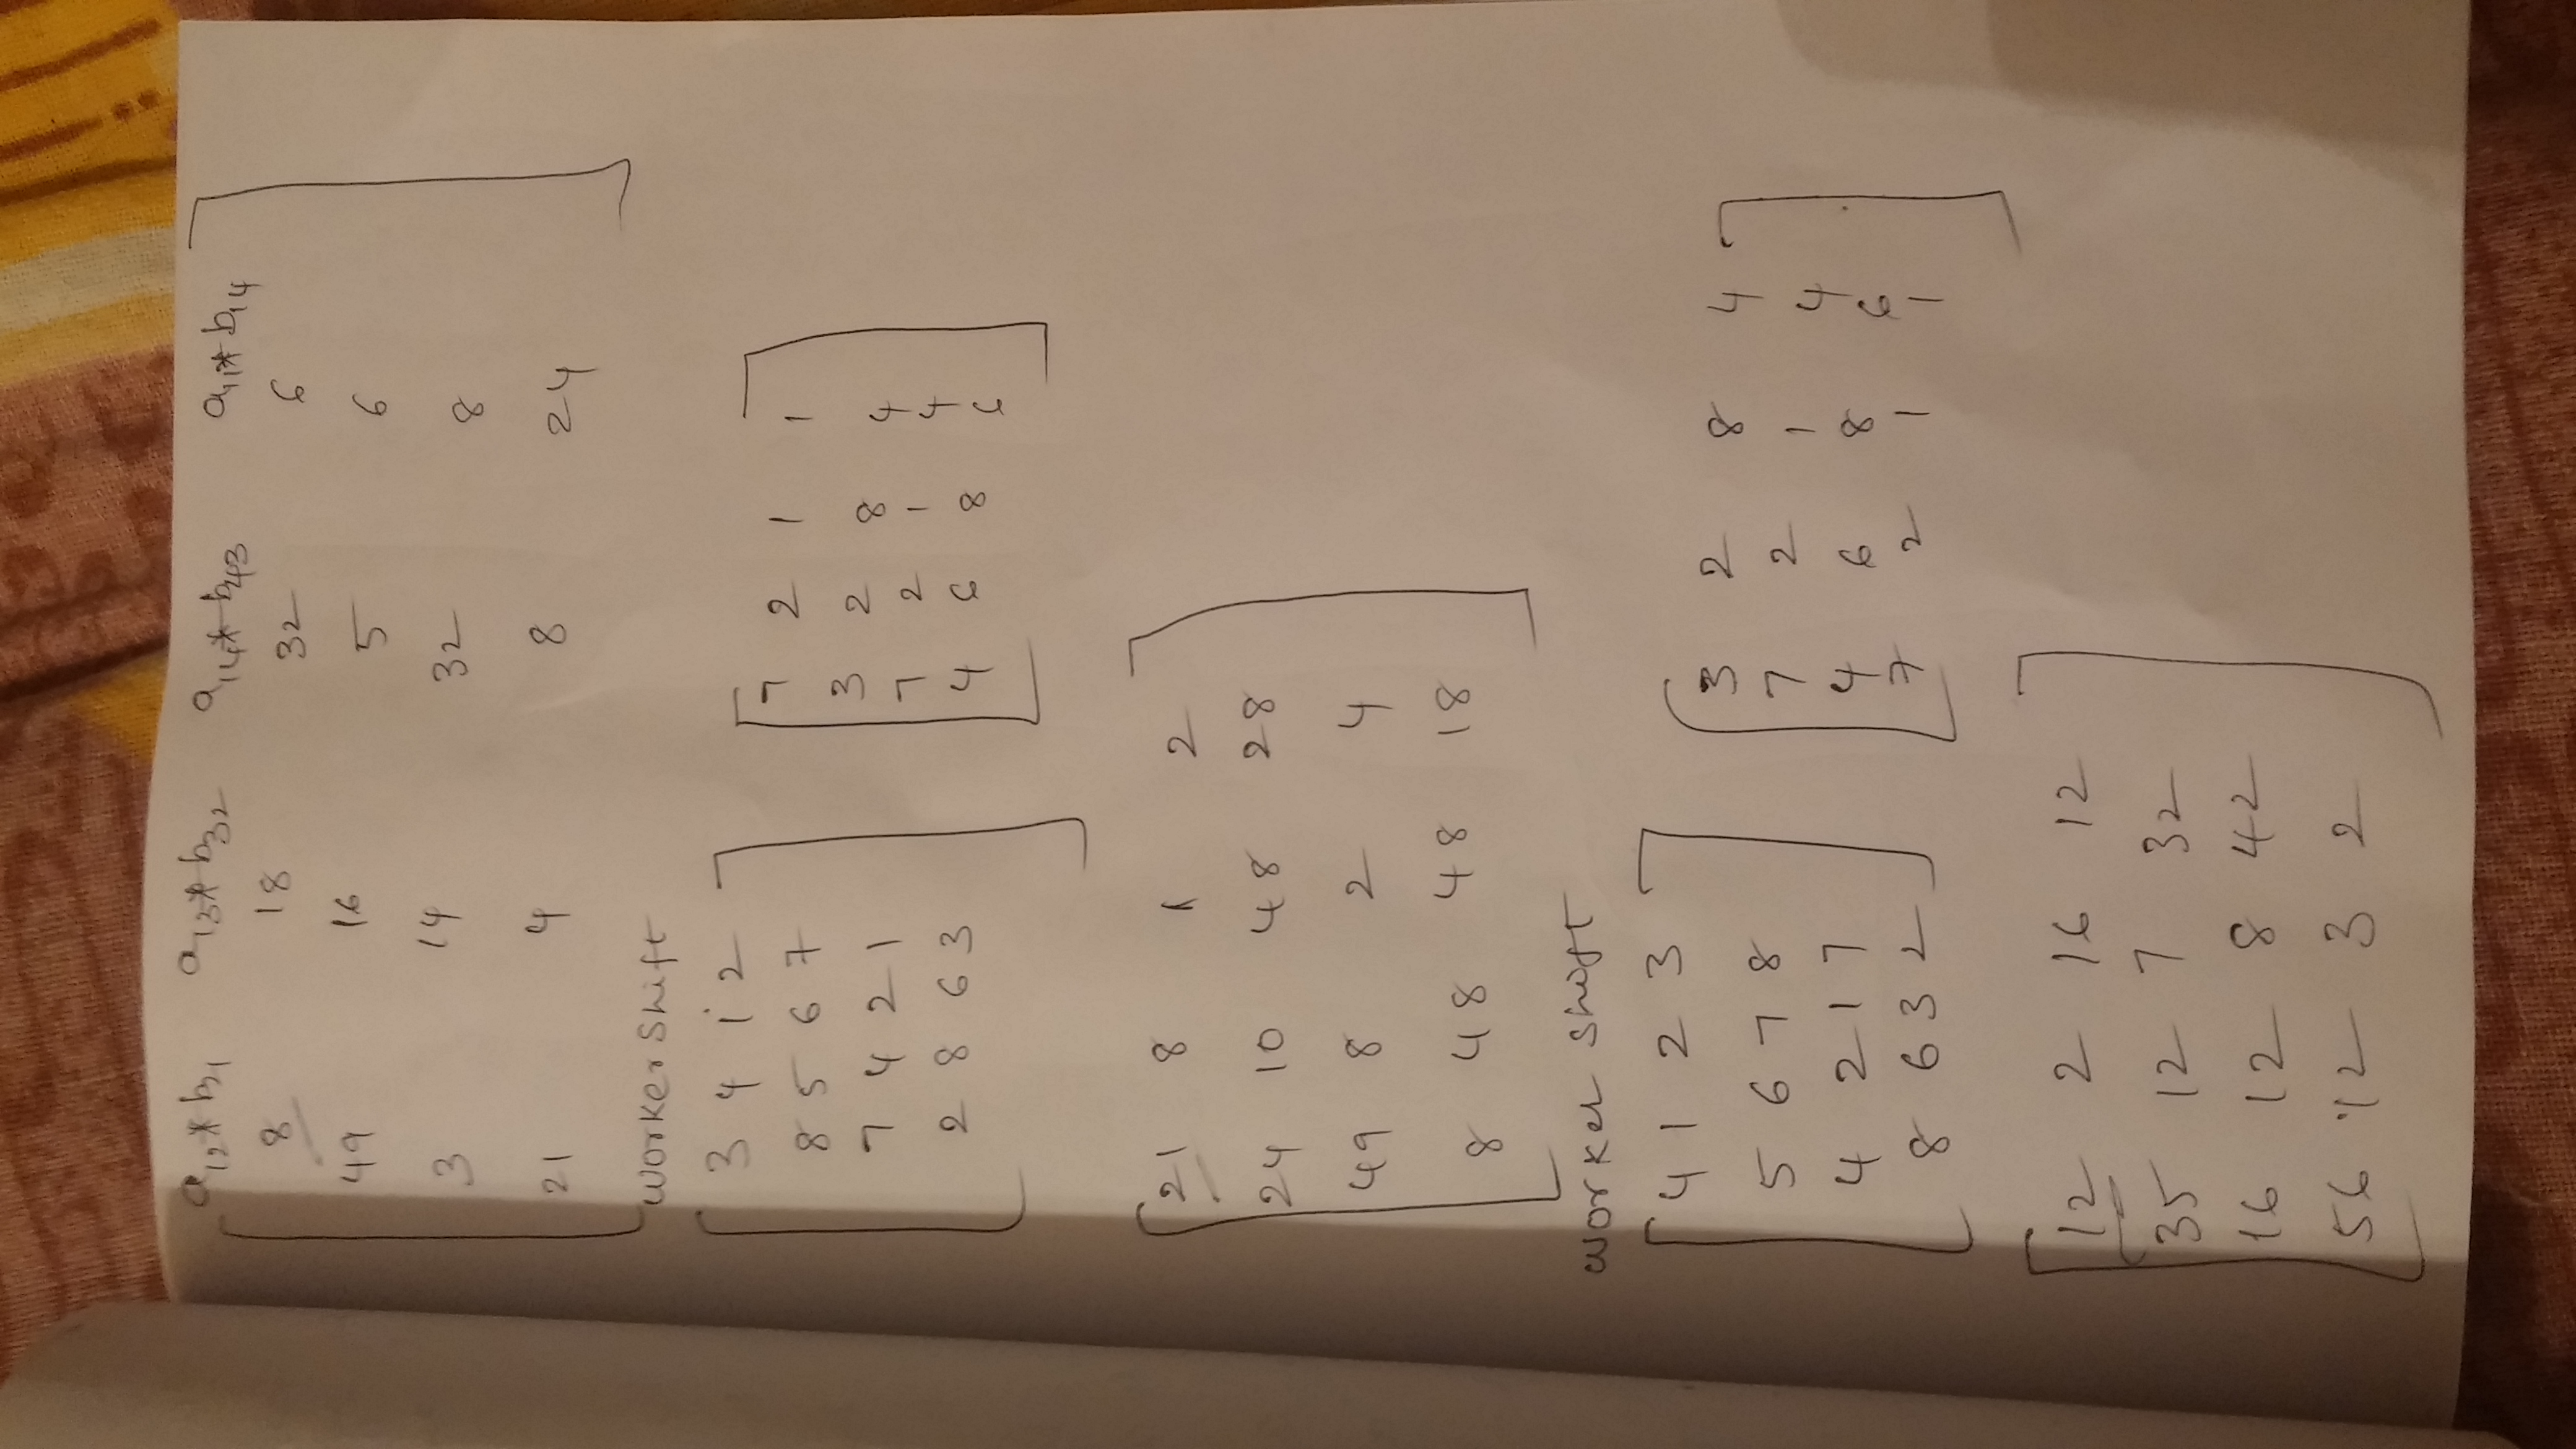 a12*b21 a13*b32 a14*b43 a11*b14
8 18 32 6
49 16 5 6
3 14 32 8
21 4 8 24
Worker Shift
3 4 1 2
8 5 6 7
7 4 2 1
2 8 6 3
7 2 1 1
3 2 8 4
7 2 1 4
4 6 8 6
21 8 1 2
24 10 48 28
49 8 2 4
8 48 48 18
Worker Shift
4 1 2 3
5 6 7 8
4 2 1 7
8 6 3 2
3 2 8 4
7 2 1 4
4 6 8 6
7 2 1 1
12 2 16 12
35 12 7 32
16 12 8 42
56 12 3 2